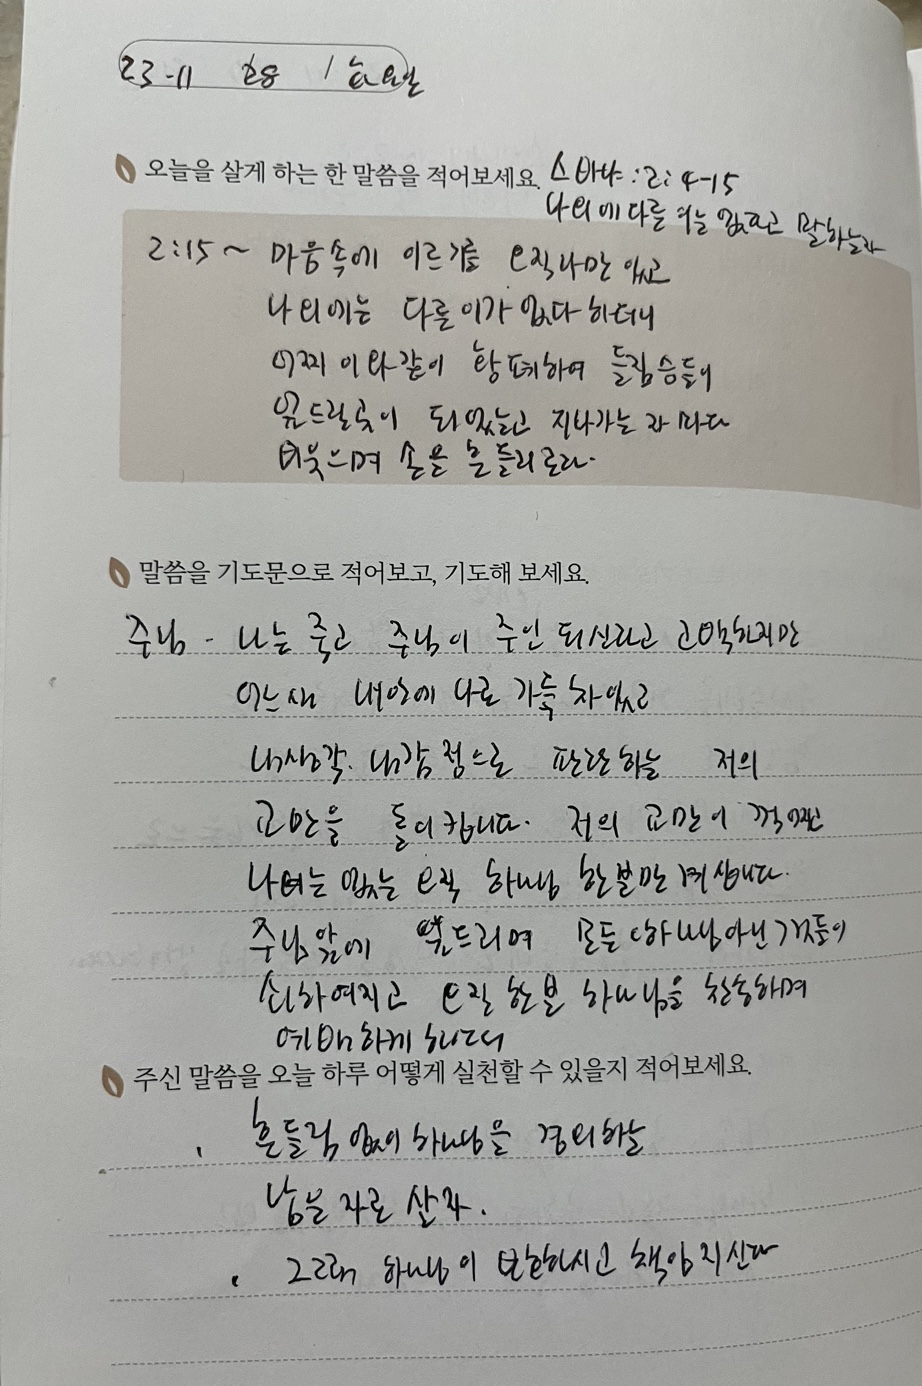 23-11 28 / 화요일
오늘을 살게 하는 한 말씀을 적어보세요. 스바냐 : 2: 4-15
나 외에 다른 이는 없다고 말하는자
2:15 ~ 마음속에 이르기를 오직 나만 있고
나 외에는 다른 이가 없다 하더니
어찌 이와 같이 황폐하여 들짐승들이
엎드릴 곳이 되었는고 지나가는 자마다
비웃으며 손을 흔들리로다.
말씀을 기도문으로 적어보고, 기도해 보세요.
주님 - 나는 죽고 주님이 주인 되신다고 고백하지만
어느새 내안에 나로 가득 차있고
내생각. 내감정으로 판단하는 저의
교만을 돌이킵니다. 저의 교만이 꺾이고
나에는 없는 오직 하나님 한분만 계십니다.
주님 앞에 엎드리며 모든 하나님 아닌 것들이
쇠하여지고 오직 한분 하나님을 찬송하며
예배하게 하소서
주신 말씀을 오늘 하루 어떻게 실천할 수 있을지 적어보세요.
. 흔들림 없이 하나님을 경외하는
남은 자로 살자.
. 그래 하나님이 보호하시고 책임지신다